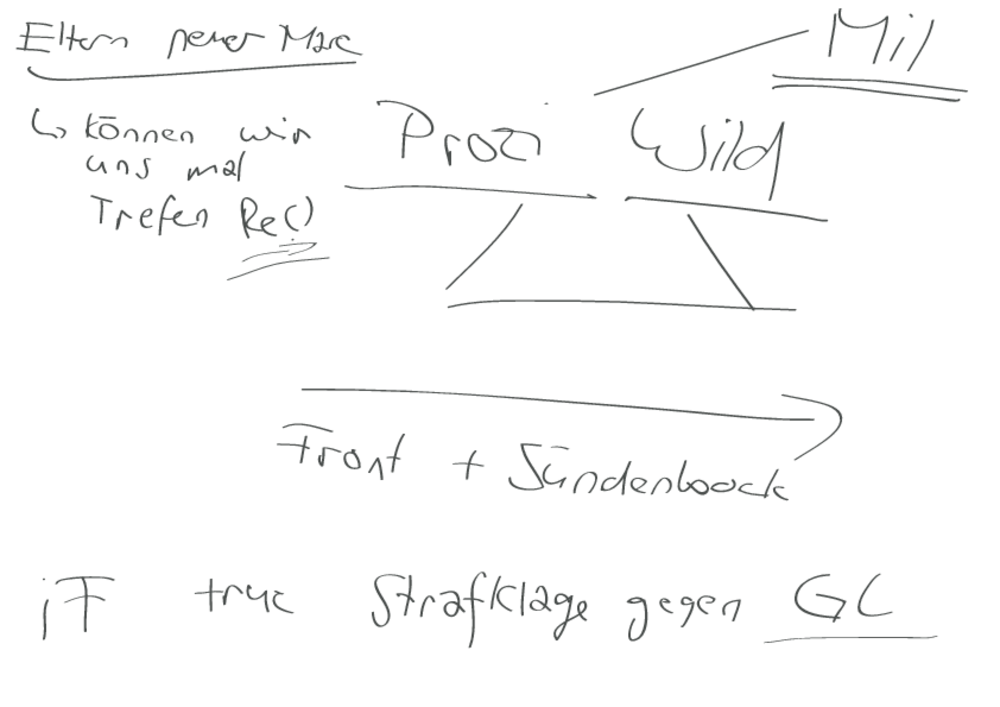 Eltern neuer Marc
↳ können wir
uns mal
Trefen Rec)
Mil
Prozi Wild
Front + Sündenboock
iF true Strafklage gegen GC